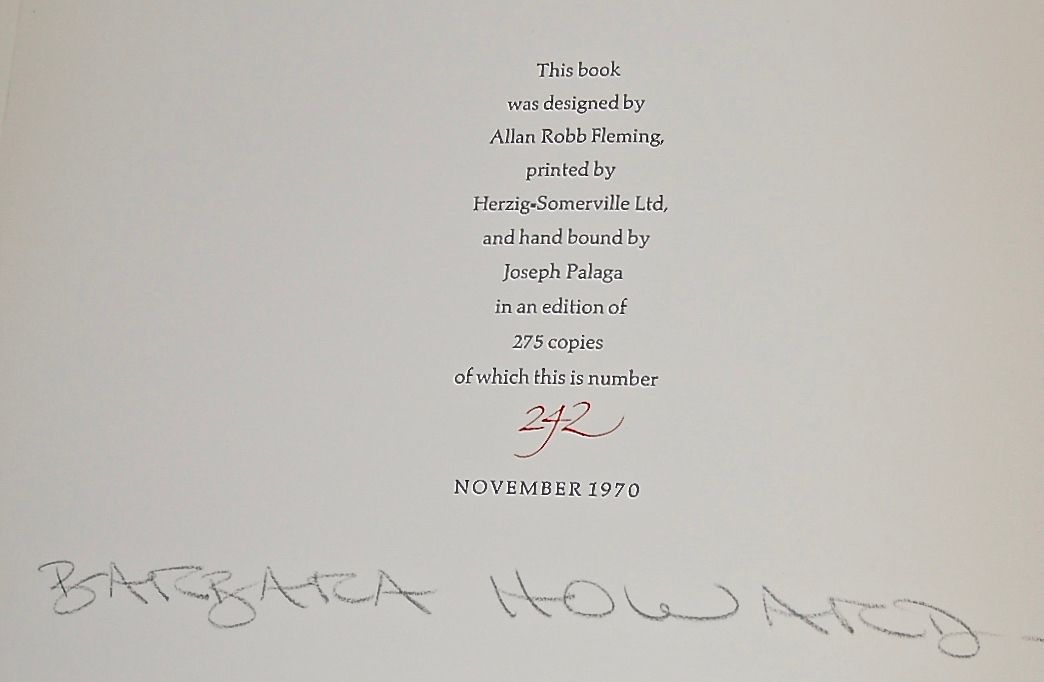 This book
was designed by
Allan Robb Fleming,
printed by
Herzig-Somerville Ltd,
and hand bound by
Joseph Palaga
in an edition of
275 copies
of which this is number
242
NOVEMBER 1970
BARBARA HOWARD